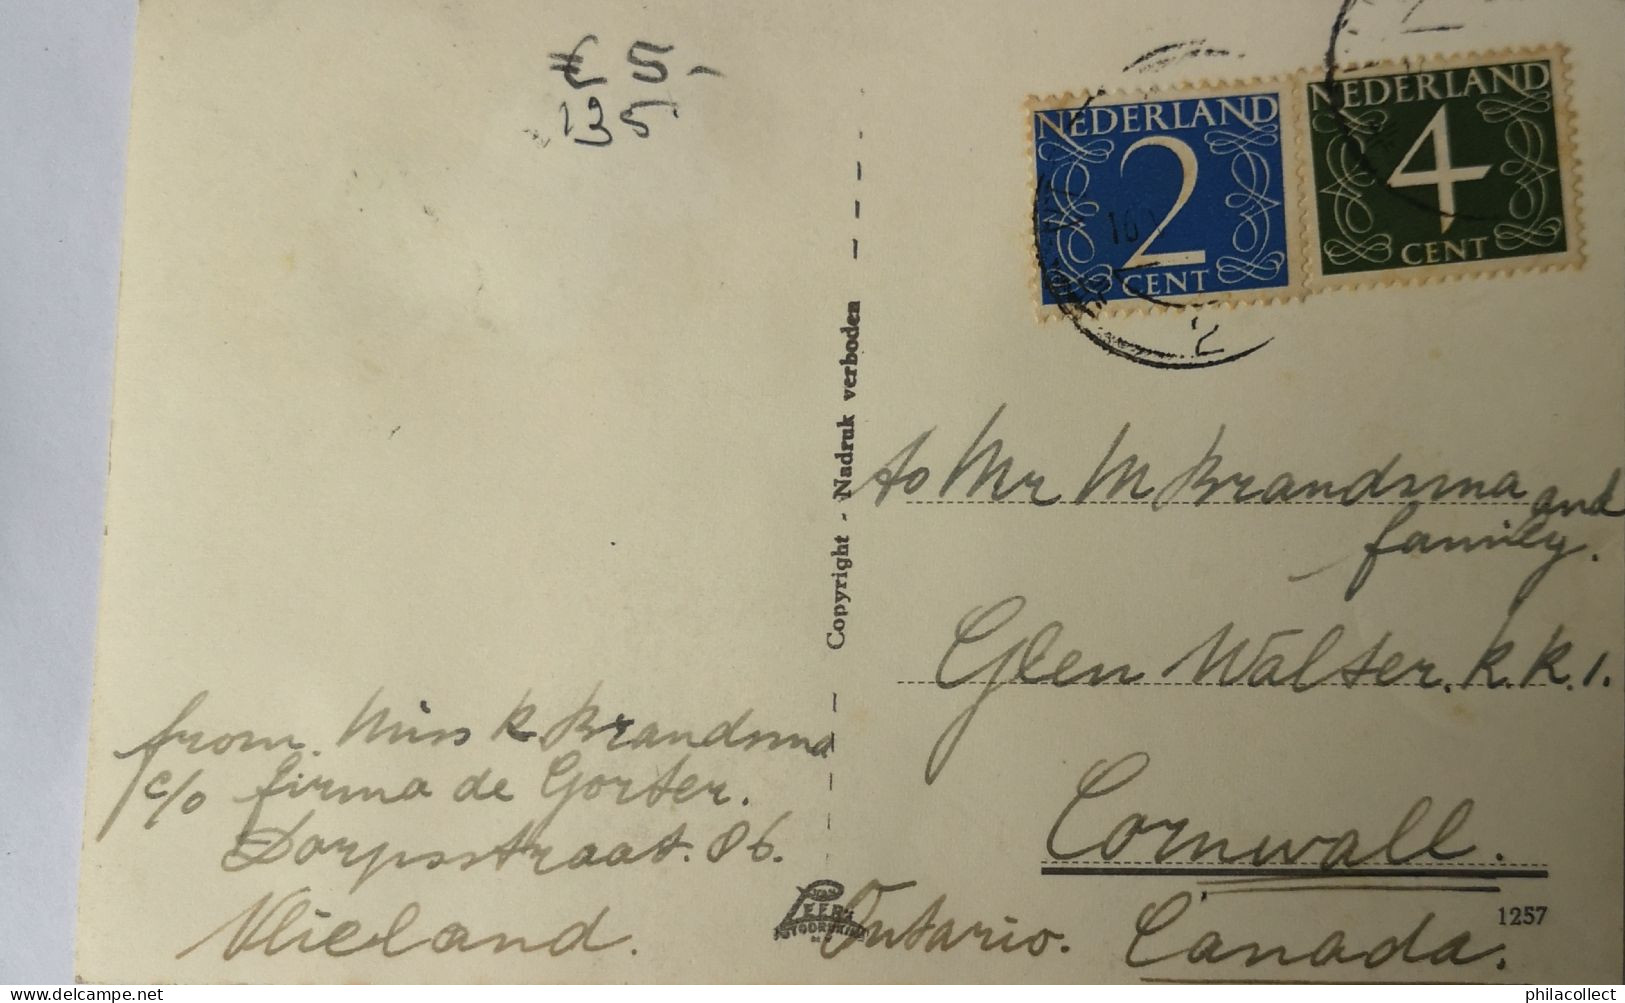 € 5-
135
NEDERLAND
2
CENT
NEDERLAND
4
CENT
10
2
Copyright - Nadruk verboden
to Mr M Brandsma and
family.
Glen Walter. R.R.1.
Cornwall.
Ontario. Canada.
from. Miss K. Brandsma
c/o firma de Gorter.
Dorpsstraat. 86.
Vlieland.
VAN
LEER'S
FOTODRUKIND
1257
philacollect